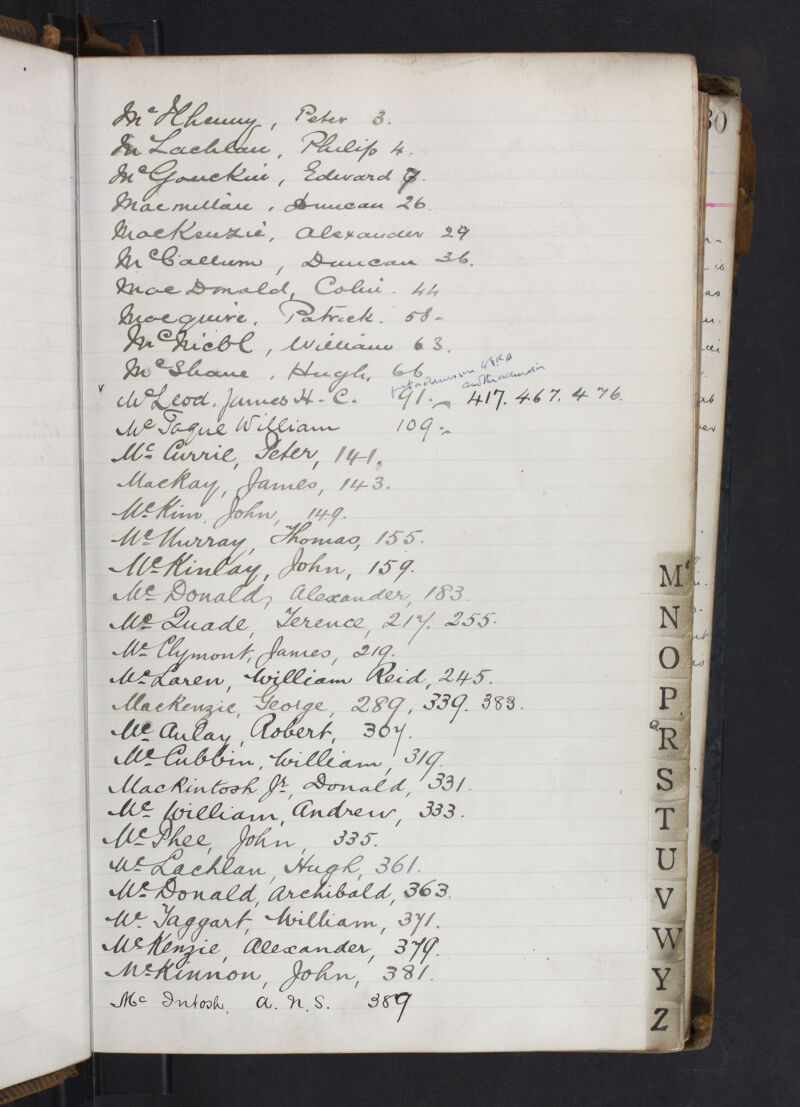 Mc Ilhenny, Peter 3.
Mc Lachlan, Philip 4.
Mc Gouckin, Edward 7.
Macmillan, Duncan 26.
MacKenzie, Alexander 29
McCallum, Duncan 36.
Mac Donald, Colin. 44
Macguire, Patrick. 58-
McNicol, William 63.
McShane, Hugh, 66
McLeod. James H. C. 91. 417. 467. 476.
Mc Tague William 109.
Mc Currie, Peter, 141.
Mackay, James, 143.
McKim, John, 149.
McMurray, Thomas, 155.
McKinlay, John, 159.
Mc Donald, Alexander, 183
Mc Quade, Terence, 217. 255.
Mc Clymont, James, 219.
McLaren, William Reid, 245.
Mackenzie, George, 289, 339. 383.
Mc Aulay, Robert, 307.
Mc Cubbin, William, 319.
Mackintosh Jr, Donald, 331.
Mc William, Andrew, 333.
Mc Phee, John, 335.
Mc Lachlan, Hugh, 361.
Mc Donald, Archibald, 363.
Mc Taggart, William, 371.
McKenzie, Alexander, 379.
McKinnon, John, 381.
Mc Intosh, A. N. S. 389
Mc
N
O
P
QR
S
T
U
V
W
Y
Z
30